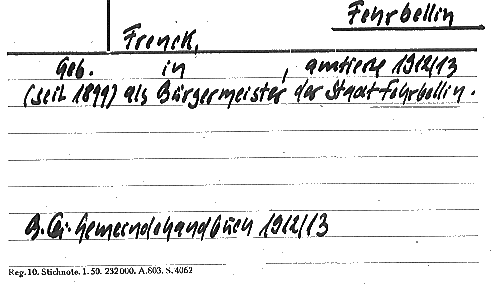 Fehrbellin
Frenck,
Geb. in , amtierte 1912/13
(seit 1899) als Bürgermeister der Stadt Fehrbellin.
Gemeindehandbuch 1912/13
Reg. 10. Stichnote. 1. 50. 232000. A. 803. S. 4062